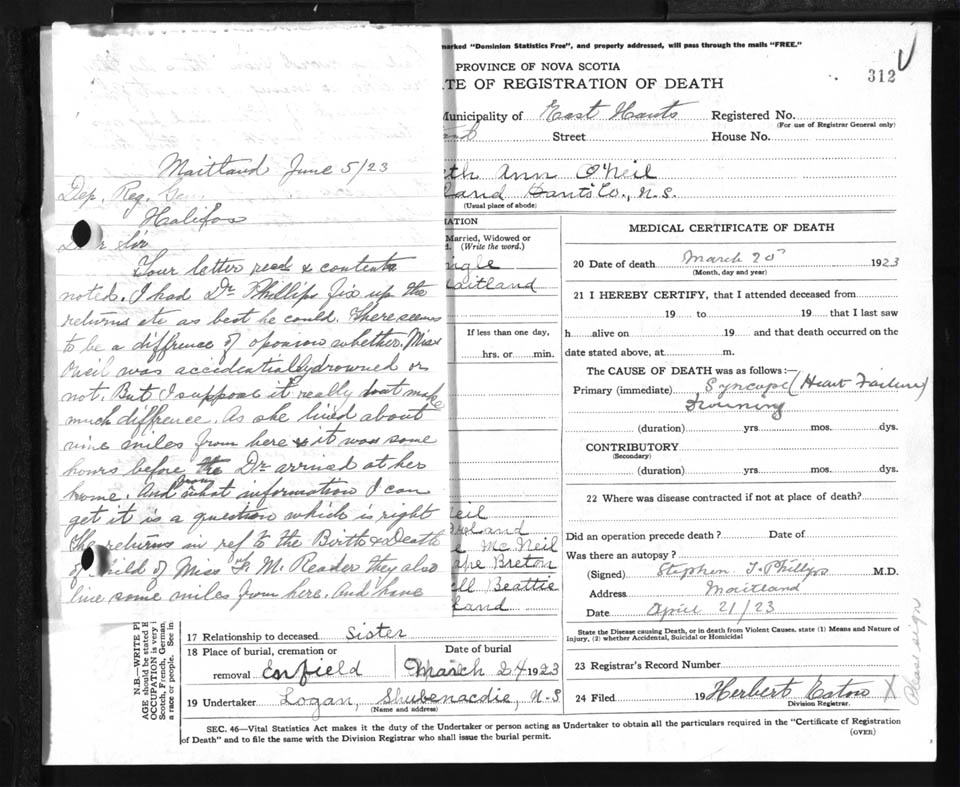 Maitland June 5/23
Dep. Reg. Gen
Halifax
Dear Sir
Your letter recd & contents
noted. I had Dr Phillips fix up the
returns etc as best he could. There seems
to be a diffrence of oponion whether Miss
Oneil was accidentially drowned or
not. But I suppose it really dont make
much diffrence. As she lived about
nine miles from here & it was some
hours before the Dr arrived at her
home. And from what information I can
get it is a question which is right
The returns in ref to the Birth & Death
of Child of Miss F. M. Reader they also
live some miles from here. And have
marked "Dominion Statistics Free", and properly addressed, will pass through the mails "FREE."
312
PROVINCE OF NOVA SCOTIA
TE OF REGISTRATION OF DEATH
Municipality of East Hants Registered No.
(For use of Registrar General only)
Street House No.
eth Ann O'Neil
land Hants Co., N.S.
(Usual place of abode)
ATION
Married, Widowed or
(Write the word.)
ngle
Maitland
If less than one day,
hrs. or min.
eil
Ireland
Mc Neil
ape Breton
ell Beattie
land
17 Relationship to deceased Sister
18 Place of burial, cremation or Date of burial
removal Enfield March 24 1923
19 Undertaker Logan, Shubenacdie, N-S
(Name and address)
N.B.—WRITE PL
AGE should be stated E
OCCUPATION is very i
Scotch, French, German
a race or people. See in
MEDICAL CERTIFICATE OF DEATH
20 Date of death March 20 1923
(Month, day and year)
21 I HEREBY CERTIFY, that I attended deceased from
19 to 19 that I last saw
h alive on 19 and that death occurred on the
date stated above, at m.
The CAUSE OF DEATH was as follows:—
Primary (immediate) Syncope (Heart Failure)
(duration) yrs. mos. dys.
CONTRIBUTORY
(Secondary)
(duration) yrs. mos. dys.
22 Where was disease contracted if not at place of death?
Did an operation precede death? Date of
Was there an autopsy?
(Signed) Stephen T. Phillips M.D.
Address Maitland
Date April 21/23
State the Disease causing Death, or in death from Violent Causes, state (1) Means and Nature of
Injury, (2) whether Accidental, Suicidal or Homicidal
23 Registrar's Record Number
24 Filed 19 Herbert Eaton X
Division Registrar.
Please sign
SEC. 46—Vital Statistics Act makes it the duty of the Undertaker or person acting as Undertaker to obtain all the particulars required in the "Certificate of Registration
of Death" and to file the same with the Division Registrar who shall issue the burial permit.
(OVER)